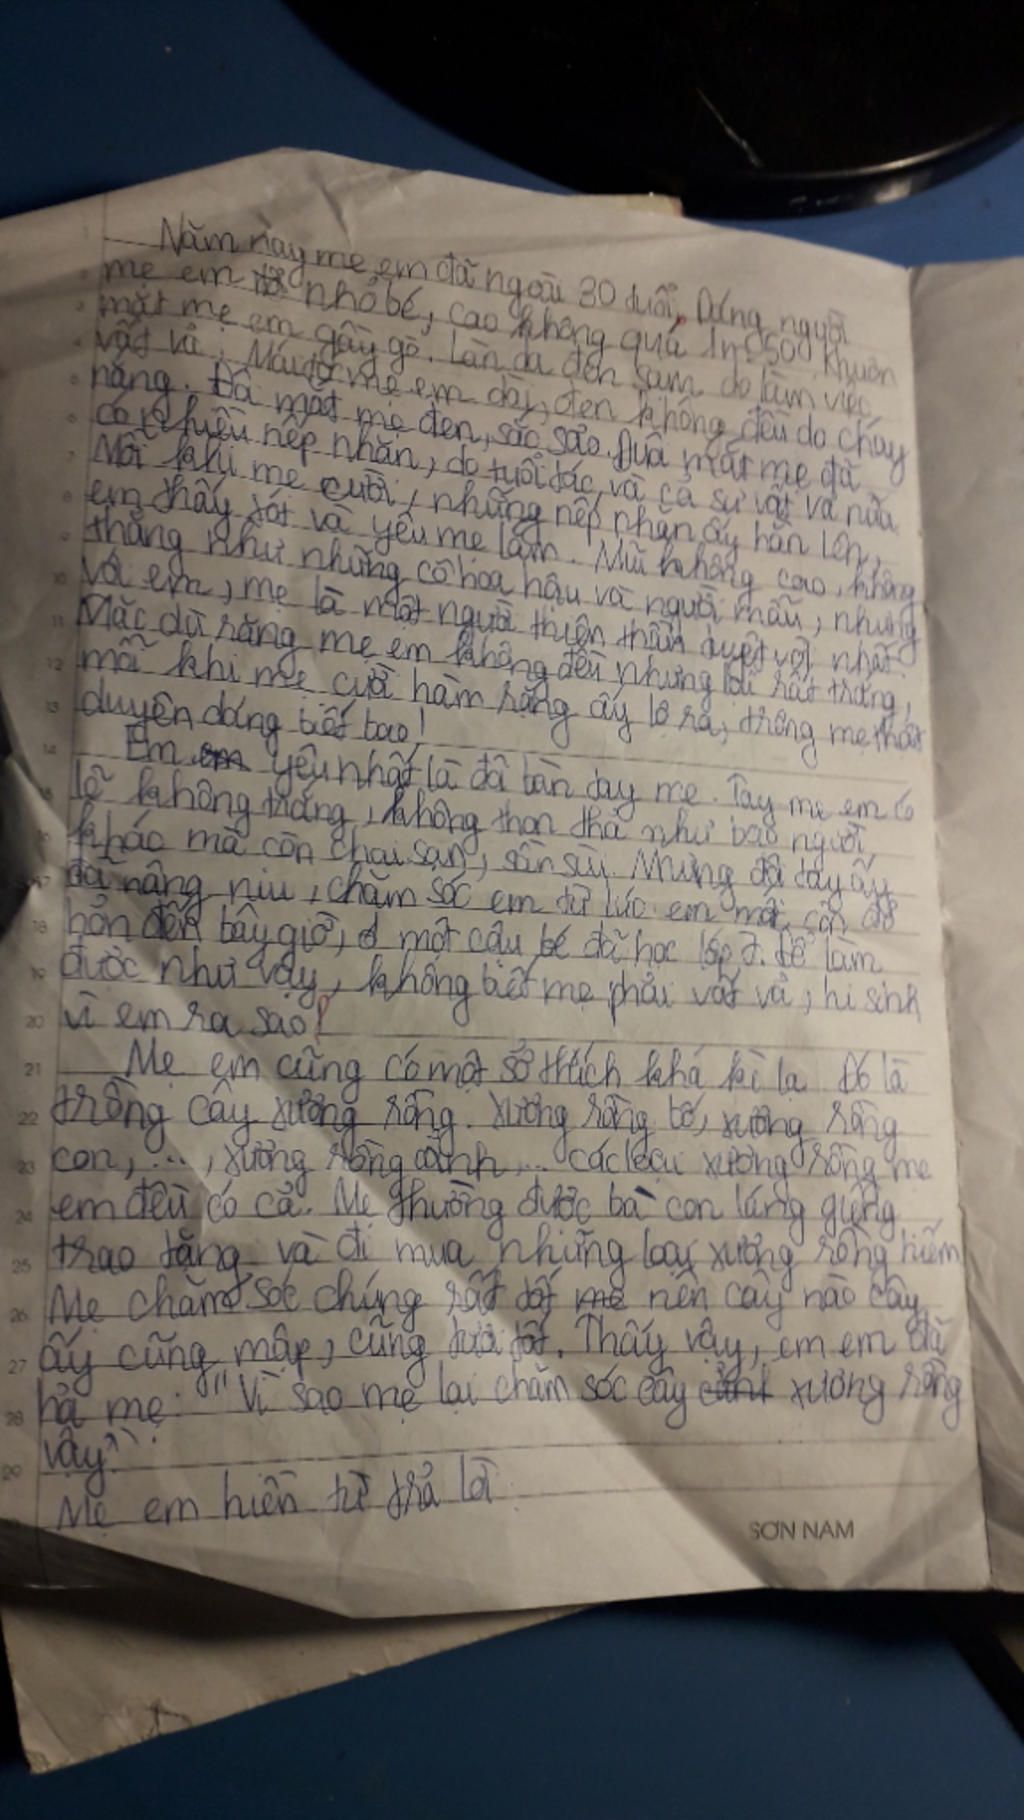 Năm nay mẹ em đã ngoài 30 tuổi, Dáng người
mẹ em nhỏ bé, cao không quá 1m50. Khuôn
mặt mẹ em gầy gò. Làn da đen sạm do làm việc
vất vả. Mái tóc mẹ em dài, đen không đều do cháy
nắng. Đôi mắt mẹ đen, sắc sảo. Đuôi mắt mẹ đã
có nhiều nếp nhăn, do tuổi tác, và cả sự vất vả nữa.
Mỗi khi mẹ cười, những nếp nhăn ấy hằn lên,
em thấy xót và yêu mẹ lắm. Mũi không cao, không
thẳng như những cô hoa hậu và người mẫu, nhưng
với em, mẹ là một người thiên thần tuyệt vời nhất.
Mặc dù răng mẹ em không đều nhưng lại rất trắng,
mỗi khi mẹ cười hàm răng ấy lộ ra, trông mẹ thật
duyên dáng biết bao!
Em em yêu nhất là đôi bàn tay mẹ. Tay mẹ em có
lẽ không trắng, không thon thả như bao người
kháo mà còn chai sạn, sần sùi. Nhưng đôi tay ấy
đã nâng niu, chăm sóc em từ lúc em mới còn đỏ
hỏn đến bây giờ, một cậu bé đã học lớp 7. Để làm
được như vậy, không biết mẹ phải vất vả, hi sinh
vì em ra sao!
Mẹ em cũng có một sở thích khá kì lạ Đó là
trồng cây xương rồng. Xương rồng bố, xương rồng
con, ..., xương rồng cảnh,... các loại xương rồng mẹ
em đều có cả. Mẹ thường được bà con láng giềng
trao tặng và đi mua những loại xương rồng hiếm
Mẹ chăm sóc chúng rất tốt mẹ nên cây nào cây
ấy cũng mập, cũng tươi tốt. Thấy vậy, em em đã
hỏi mẹ: "Vì sao mẹ lại chăm sóc cây cảnh xương rồng
vậy?".
Mẹ em hiền từ trả lời
SƠN NAM